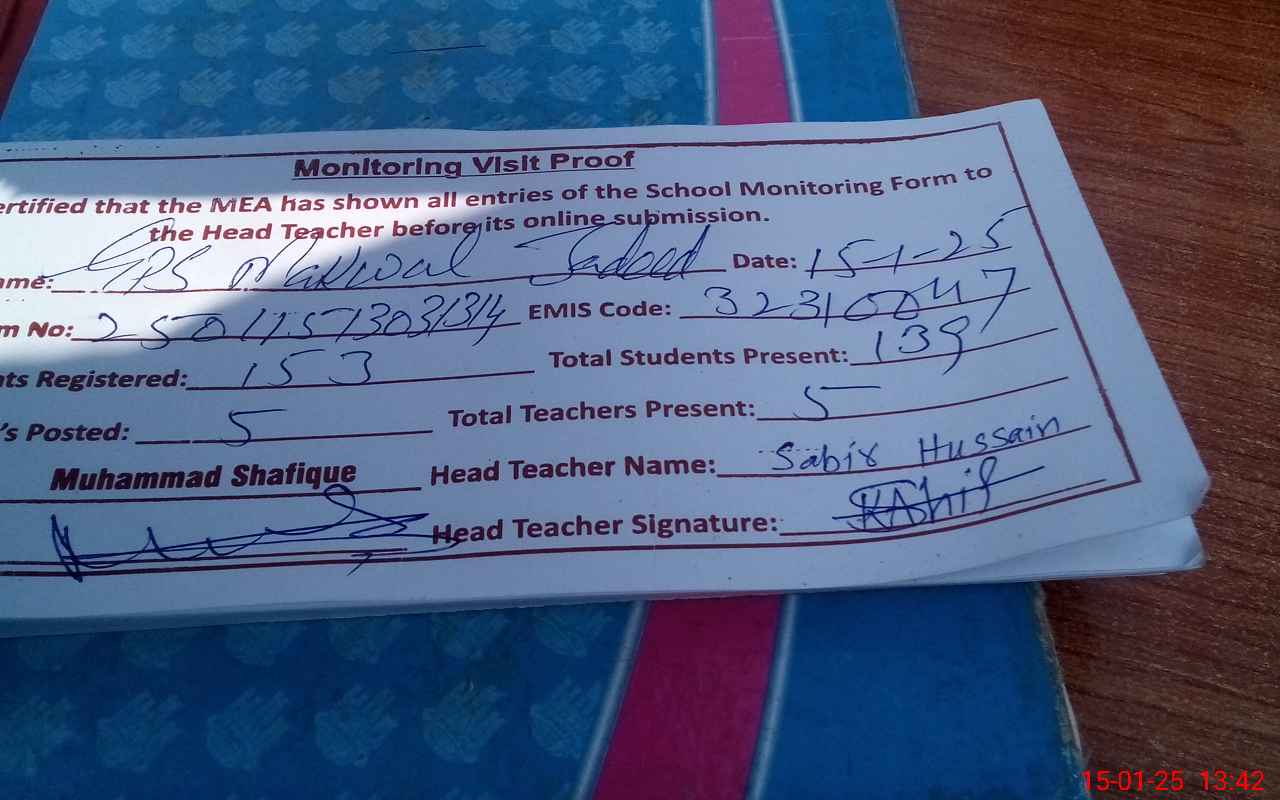 Monitoring Visit Proof
ertified that the MEA has shown all entries of the School Monitoring Form to
the Head Teacher before its online submission.
ame: GPS Makwal Jadeed Date: 15-1-25
m No: EMIS Code: 32310047
nts Registered: 153 Total Students Present: 139
's Posted: 5 Total Teachers Present: 5
Muhammad Shafique Head Teacher Name: Sabir Hussain
Head Teacher Signature: KAshif
15-01-25 13:42